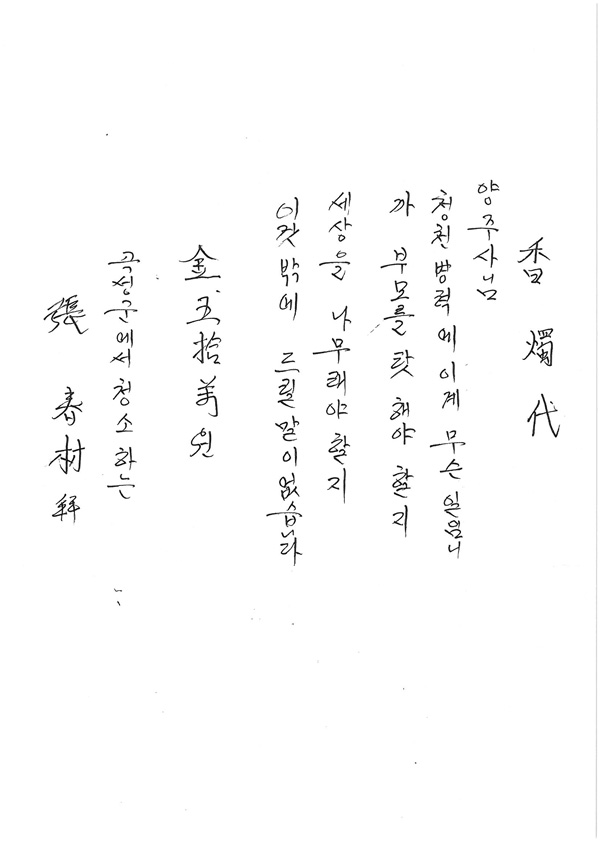 香燭代
양주사님
청천 병력에 이게 무슨 일임니
까 부모를 탓 해야 할지
세상을 나무래야할지
이것 밖에 드릴말이없습니다
金五拾萬원
곡성군에서청소하는
張春村拜